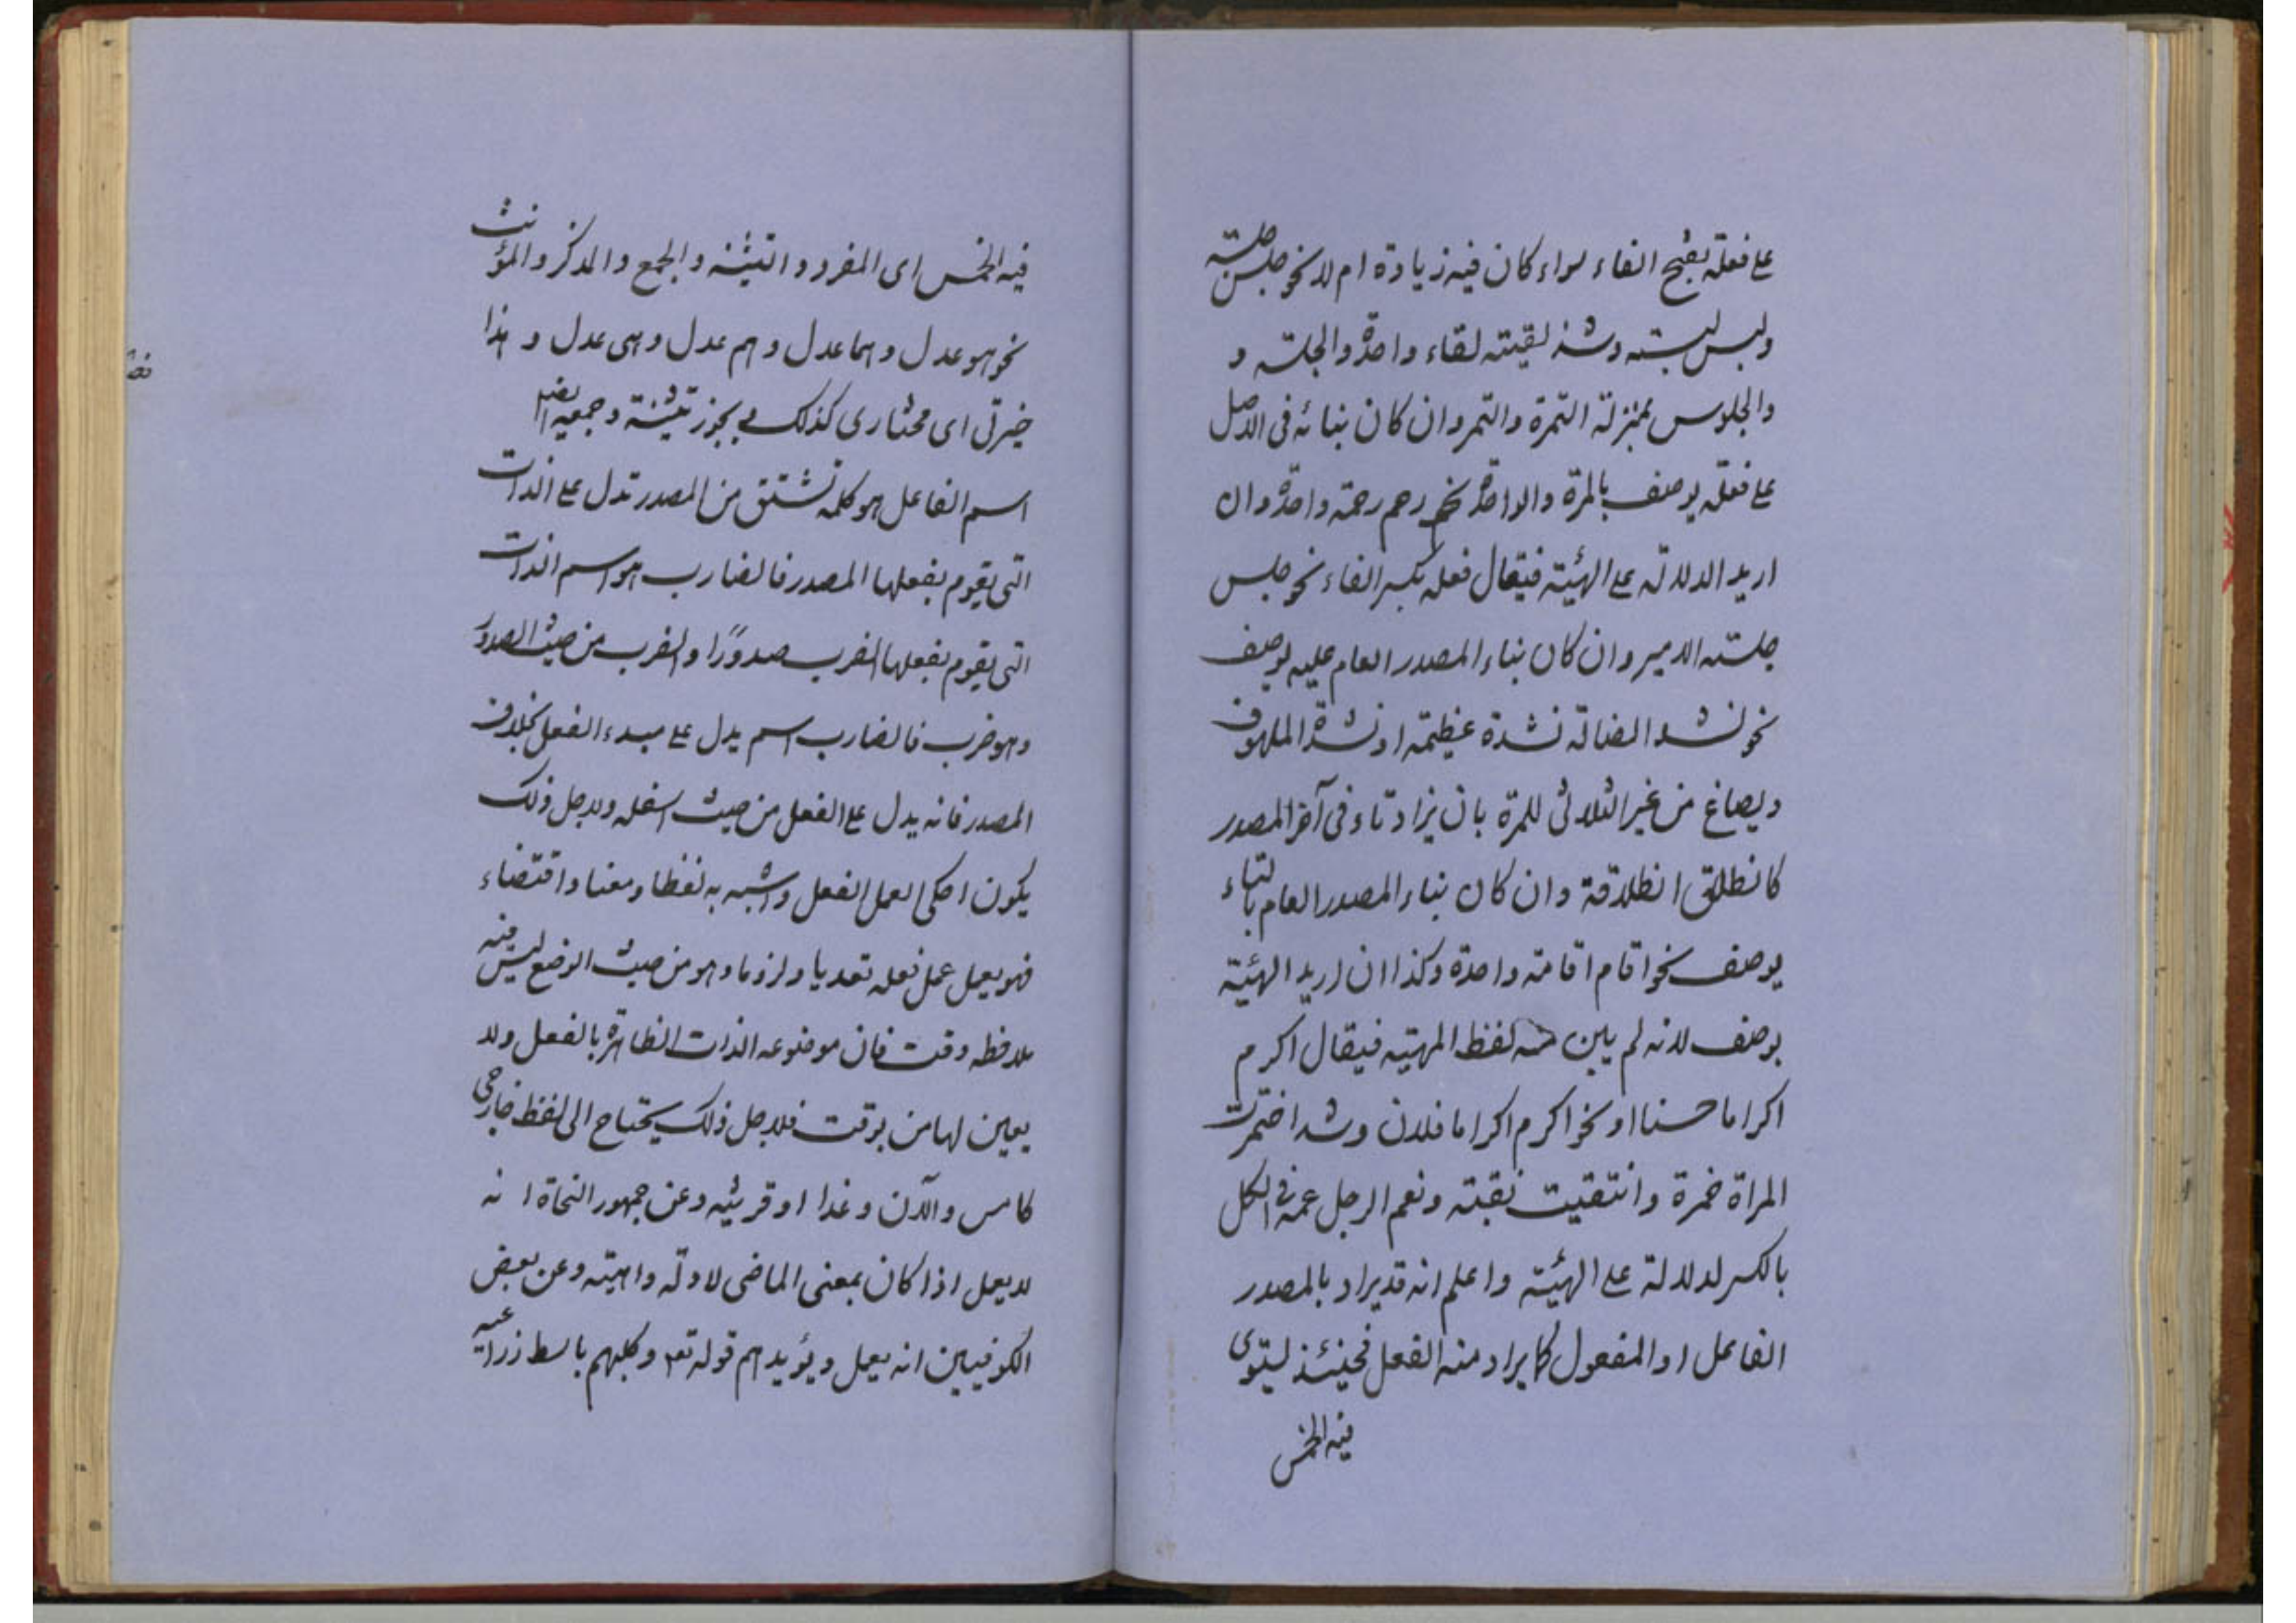 على فعلة بفتح الفاء سواء كان فيه زيادة ام لا نحو جلس جلسته
ولبس لبسته وشذ لقيته لقاء واحدة والجلسه و
والجلوس بمنزلة التمرة والتمر وان كان بنائه فى الاصل
على فعلة يوصف بالمرة والواحدة نحو رحم رحمة واحدة وان
اريد الدلالة على الهيئة فيقال فعله بكسر الفاء نحو جلس
جلسته الامير وان كان بناء المصدر العام عليه يوصف
نحو نشد الضالة نشدة عظيمة او نشدة الملهوف
ويصاغ من غير الثلاثى للمرة بان يزاد تاء فى آخر المصدر
كانطلق انطلاقة وان كان بناء المصدر العام بالتاء
يوصف نحو اقام اقامته واحدة وكذا ان اريد الهيئة
يوصف لانه لم يبن منه لفظ الهيئة فيقال اكرم
اكراما حسنا او نحو اكرم اكراما فلان وشد اختمرت
المراة خمرة وانتقيت نقبته ونعم الرجل عمه فى الكل
بالكسر للدلالة على الهيئته واعلم انه قد يراد بالمصدر
الفاعل او المفعول كما يراد منه الفعل فحينئذ يستوى
فيه الخمس
فيه الخمس اى المفرد والتثنيه والجمع والمذكر والمؤنث
نحو هو عدل وهما عدل وهم عدل وهى عدل و هذا
خيرتى اى مختارى كذلك يجوز تثنيته وجمعه ايضا
اسم الفاعل هو كلمه تشتق من المصدر تدل على الذات
التى يقوم بفعلها المصدر فالضارب هو اسم الذات
التى يقوم بفعلها الضرب صدورًا والضرب من حيث الصدور
وهو ضرب فالضارب اسم يدل على مبدء الفعل بخلاف
المصدر فانه يدل على الفعل من حيث اسفله ولاجل ذلك
يكون احكى لعمل الفعل واشبه به لفظا ومعنا واقتضاء
فهو يعمل عمل فعله تعديا ولزوما وهو من حيث الوضع ليس فيه
ملاحظه وقت فان موضوعه الذات الظاهرة بالفعل ولا
يعين لها من بوقت فلاجل ذلك يحتاج الى لفظ خارجى
كامس والآن وغدا او قرينيه وعن جمهور النحاة انه
لا يعمل اذا كان بمعنى الماضى لادلّه واهيته وعن بعض
الكوفيين انه يعمل ويؤيدهم قوله تع وكلبهم باسط ذراعيه